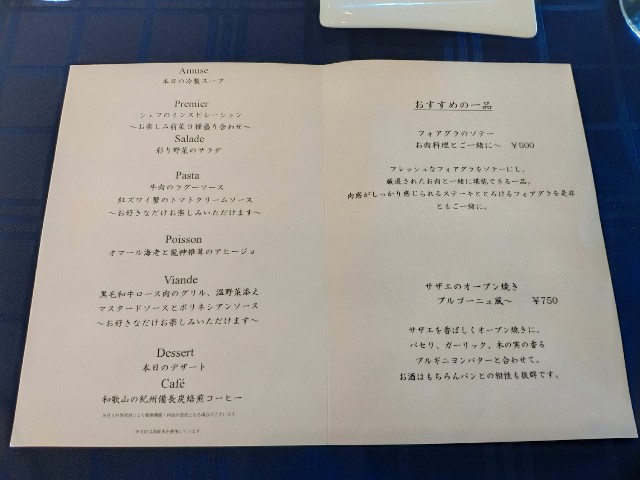 Amuse
本日の冷製スープ
Premier
シェフのインスピレーション
～お楽しみ前菜9種盛り合わせ～
Salade
彩り野菜のサラダ
Pasta
牛肉のラグーソース
紅ズワイ蟹のトマトクリームソース
～お好きなだけお楽しみいただけます～
Poisson
オマール海老と龍神椎茸のアヒージョ
Viande
黒毛和牛ロース肉のグリル、温野菜添え
マスタードソースとポリネシアンソース
～お好きなだけお楽しみいただけます～
Dessert
本日のデザート
Café
和歌山の紀州備長炭焙煎コーヒー
おすすめの一品
フォアグラのソテー
お肉料理とご一緒に～ ¥500
フレッシュなフォアグラをソテーにし、
厳選されたお肉と一緒に堪能できる一品。
肉感がしっかり感じられるステーキととろけるフォアグラを是非
ともご一緒に。
サザエのオーブン焼き
ブルゴーニュ風～ ¥750
サザエを香ばしくオーブン焼きに。
パセリ、ガーリック、木の実の香る
ブルギニヨンバターと合わせて。
お酒はもちろんパンとの相性も抜群です。